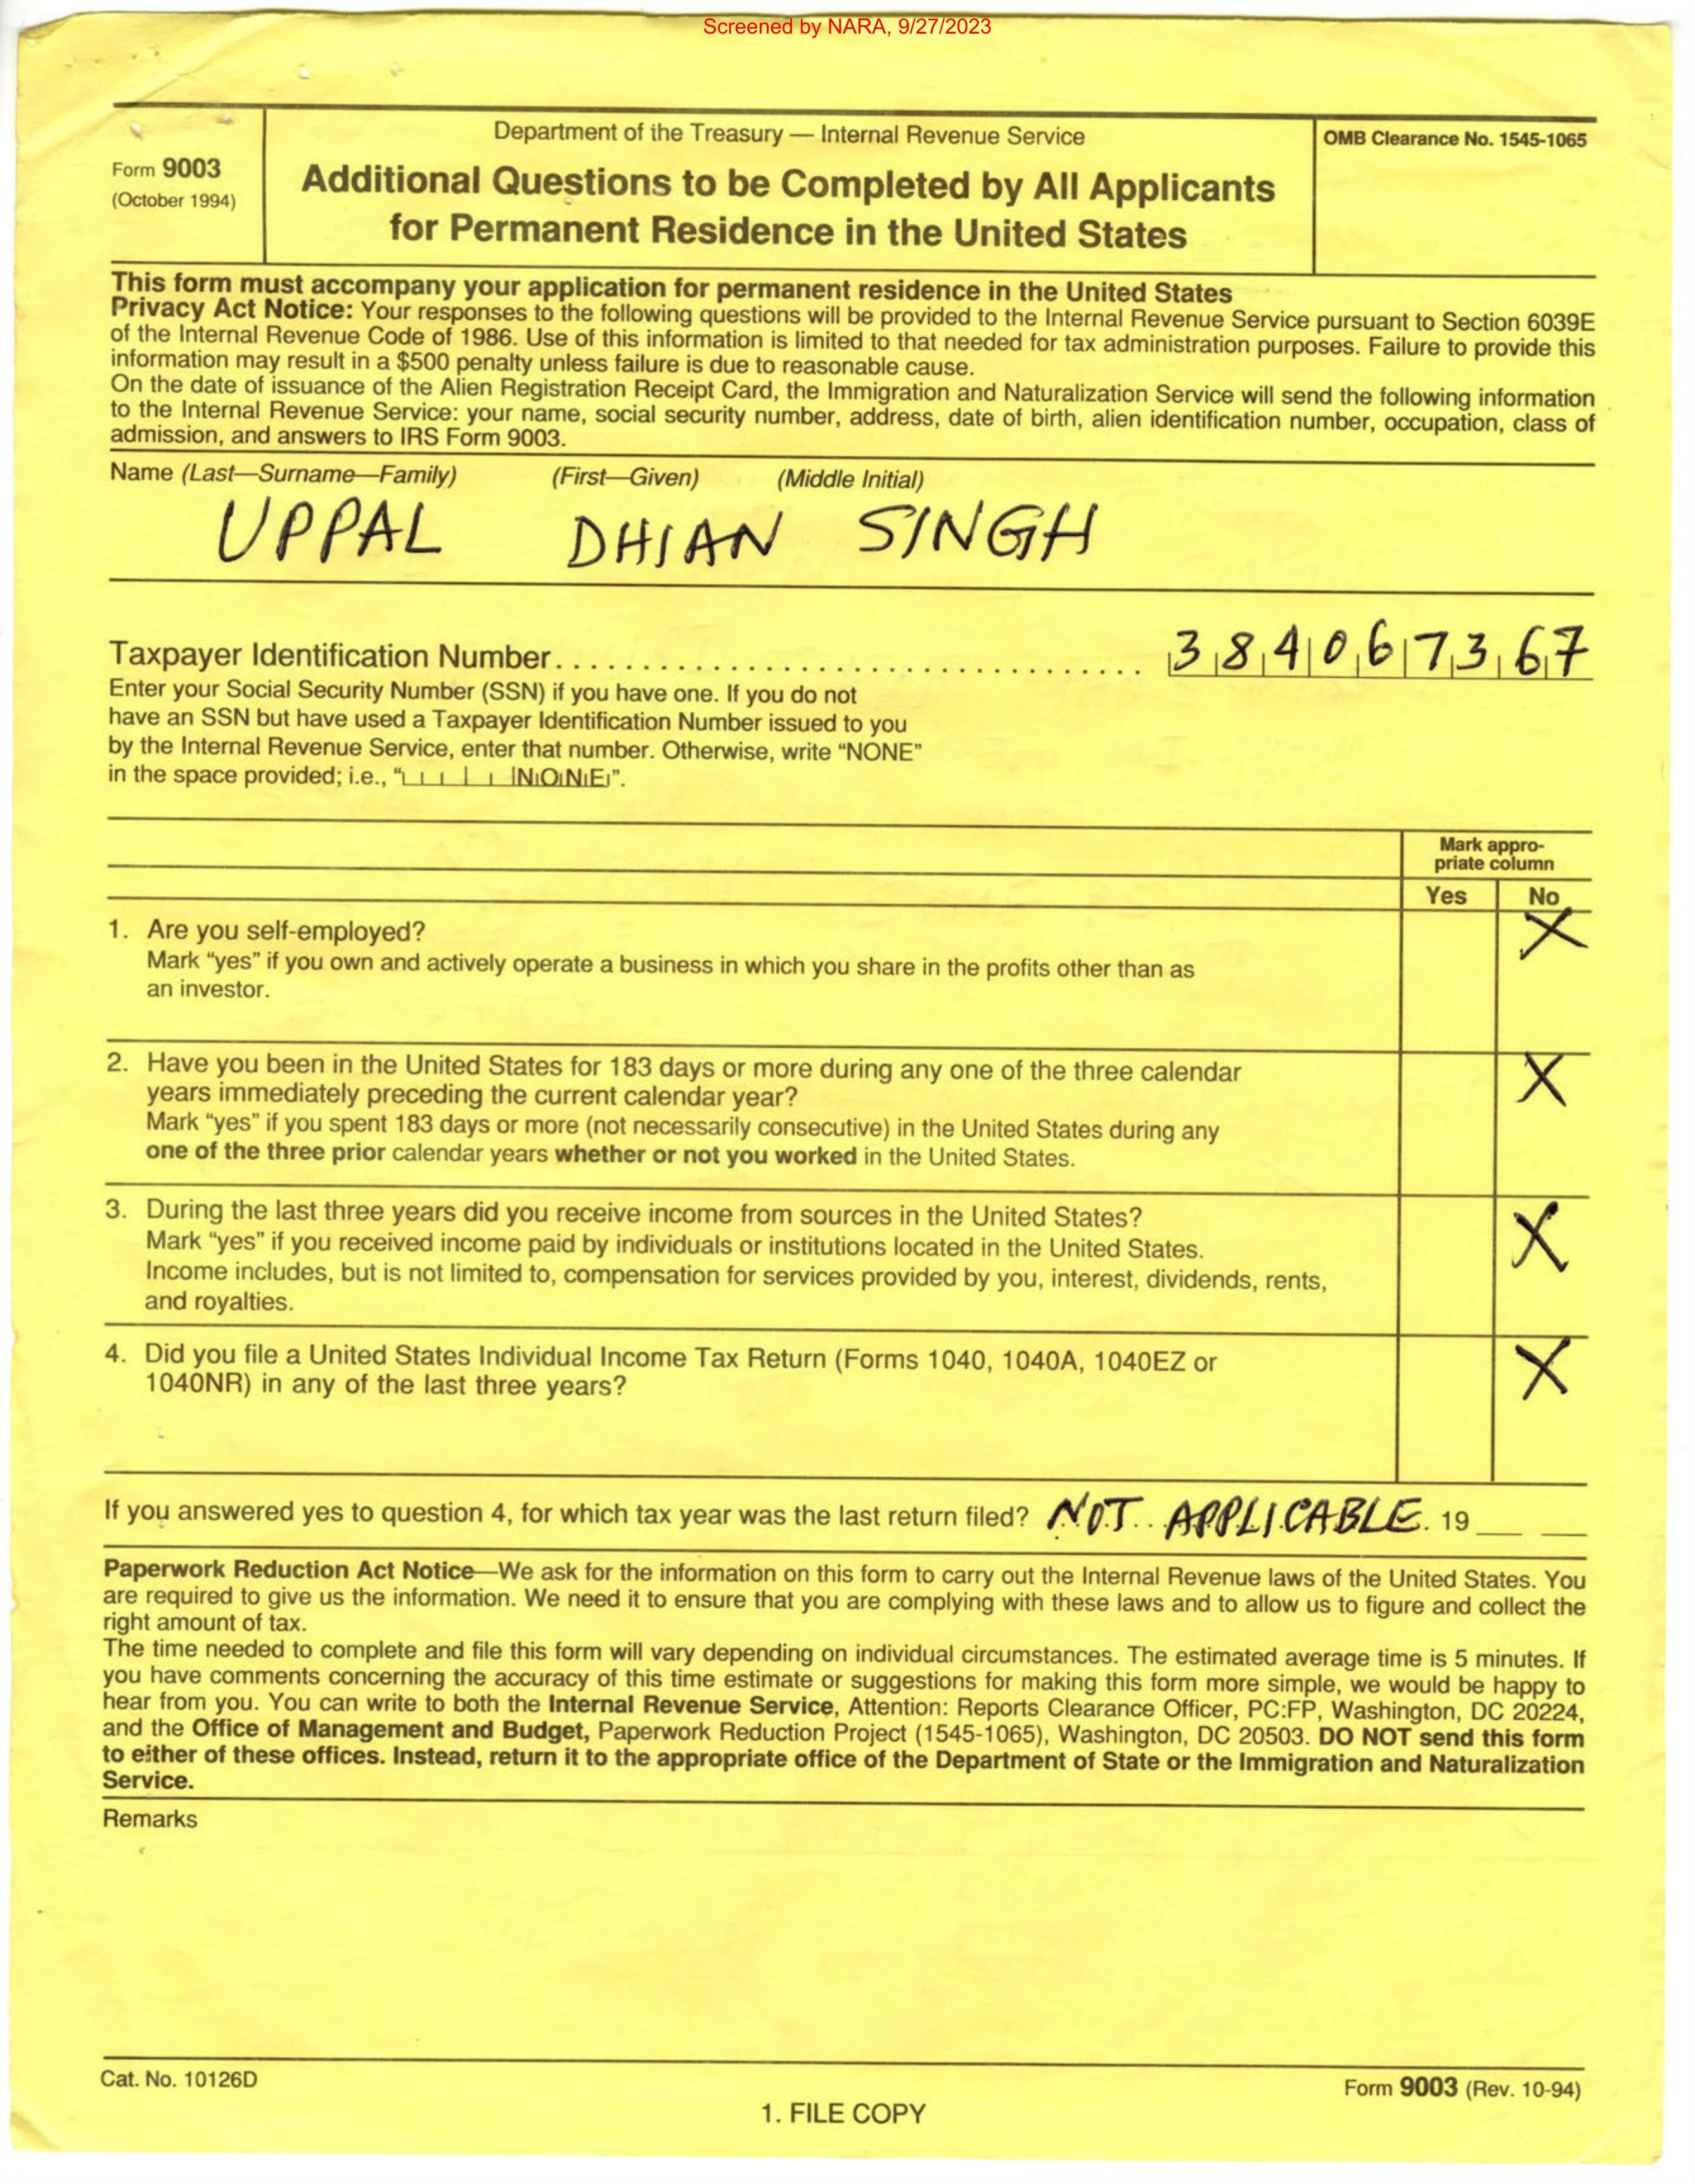 Screened by NARA, 9/27/2023
Form 9003
(October 1994)
Department of the Treasury — Internal Revenue Service
Additional Questions to be Completed by All Applicants
for Permanent Residence in the United States
OMB Clearance No. 1545-1065
This form must accompany your application for permanent residence in the United States
Privacy Act Notice: Your responses to the following questions will be provided to the Internal Revenue Service pursuant to Section 6039E
of the Internal Revenue Code of 1986. Use of this information is limited to that needed for tax administration purposes. Failure to provide this
information may result in a $500 penalty unless failure is due to reasonable cause.
On the date of issuance of the Alien Registration Receipt Card, the Immigration and Naturalization Service will send the following information
to the Internal Revenue Service: your name, social security number, address, date of birth, alien identification number, occupation, class of
admission, and answers to IRS Form 9003.
Name (Last—Surname—Family) (First—Given) (Middle Initial)
UPPAL DHIAN SINGH
Taxpayer Identification Number 384067367
Enter your Social Security Number (SSN) if you have one. If you do not
have an SSN but have used a Taxpayer Identification Number issued to you
by the Internal Revenue Service, enter that number. Otherwise, write “NONE”
in the space provided; i.e., “NONE”.
Mark appro-
priate column
Yes No
1. Are you self-employed? X
Mark “yes” if you own and actively operate a business in which you share in the profits other than as
an investor.
2. Have you been in the United States for 183 days or more during any one of the three calendar X
years immediately preceding the current calendar year?
Mark “yes” if you spent 183 days or more (not necessarily consecutive) in the United States during any
one of the three prior calendar years whether or not you worked in the United States.
3. During the last three years did you receive income from sources in the United States? X
Mark “yes” if you received income paid by individuals or institutions located in the United States.
Income includes, but is not limited to, compensation for services provided by you, interest, dividends, rents,
and royalties.
4. Did you file a United States Individual Income Tax Return (Forms 1040, 1040A, 1040EZ or X
1040NR) in any of the last three years?
If you answered yes to question 4, for which tax year was the last return filed? NOT APPLICABLE. 19
Paperwork Reduction Act Notice—We ask for the information on this form to carry out the Internal Revenue laws of the United States. You
are required to give us the information. We need it to ensure that you are complying with these laws and to allow us to figure and collect the
right amount of tax.
The time needed to complete and file this form will vary depending on individual circumstances. The estimated average time is 5 minutes. If
you have comments concerning the accuracy of this time estimate or suggestions for making this form more simple, we would be happy to
hear from you. You can write to both the Internal Revenue Service, Attention: Reports Clearance Officer, PC:FP, Washington, DC 20224,
and the Office of Management and Budget, Paperwork Reduction Project (1545-1065), Washington, DC 20503. DO NOT send this form
to either of these offices. Instead, return it to the appropriate office of the Department of State or the Immigration and Naturalization
Service.
Remarks
Cat. No. 10126D
Form 9003 (Rev. 10-94)
1. FILE COPY